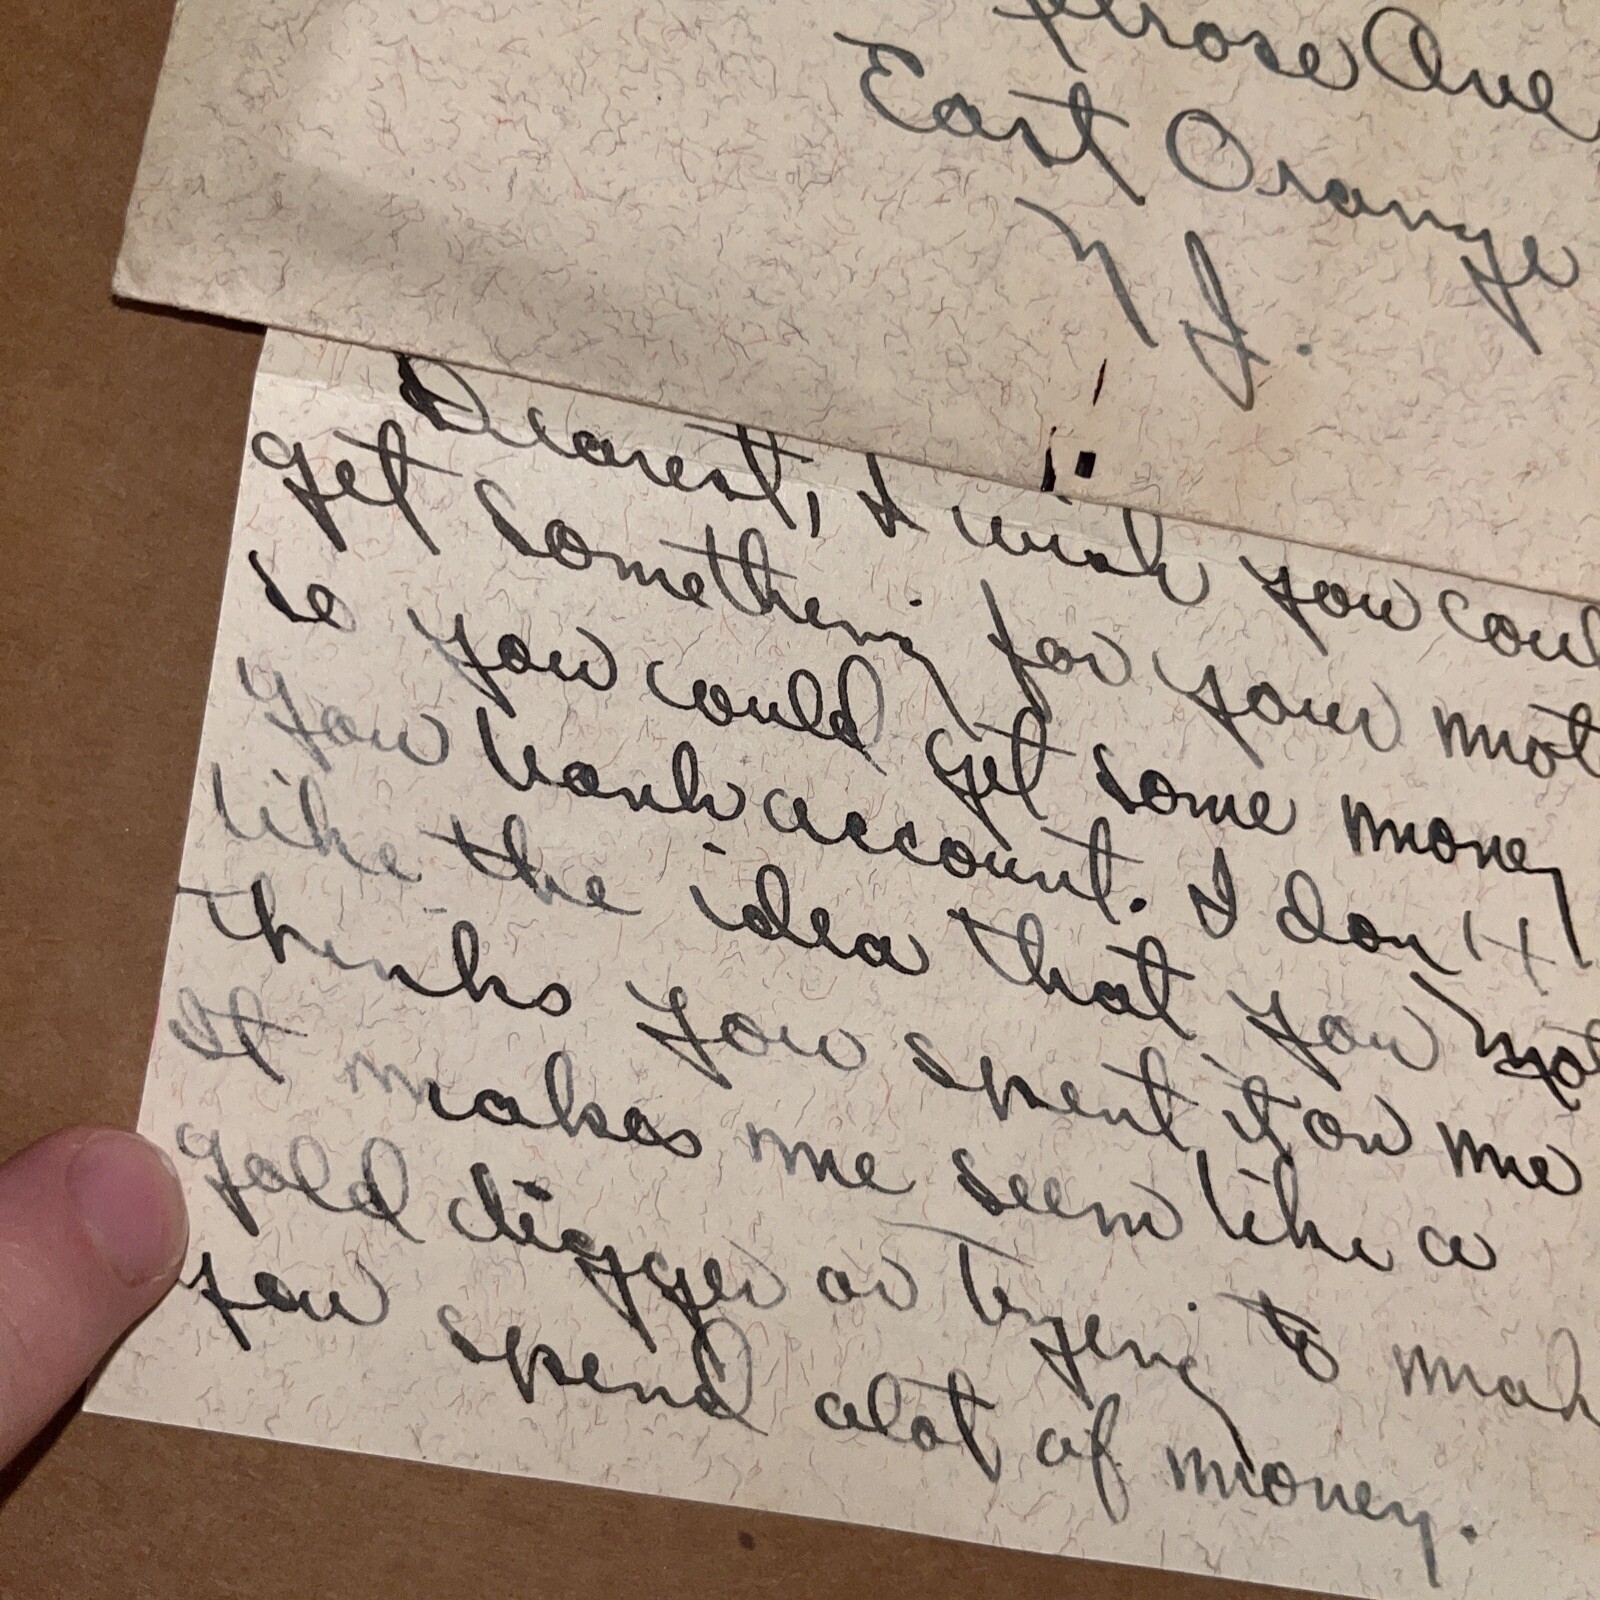 Ave
East Orange
N J.
Dearest, I wish you coul
get something for your mot
so you could get some money
you bank account. I don't
like the idea that you mot
thinks you spent it on me
It makes me seem like a
gold digger or trying to mak
you spend alot of money.